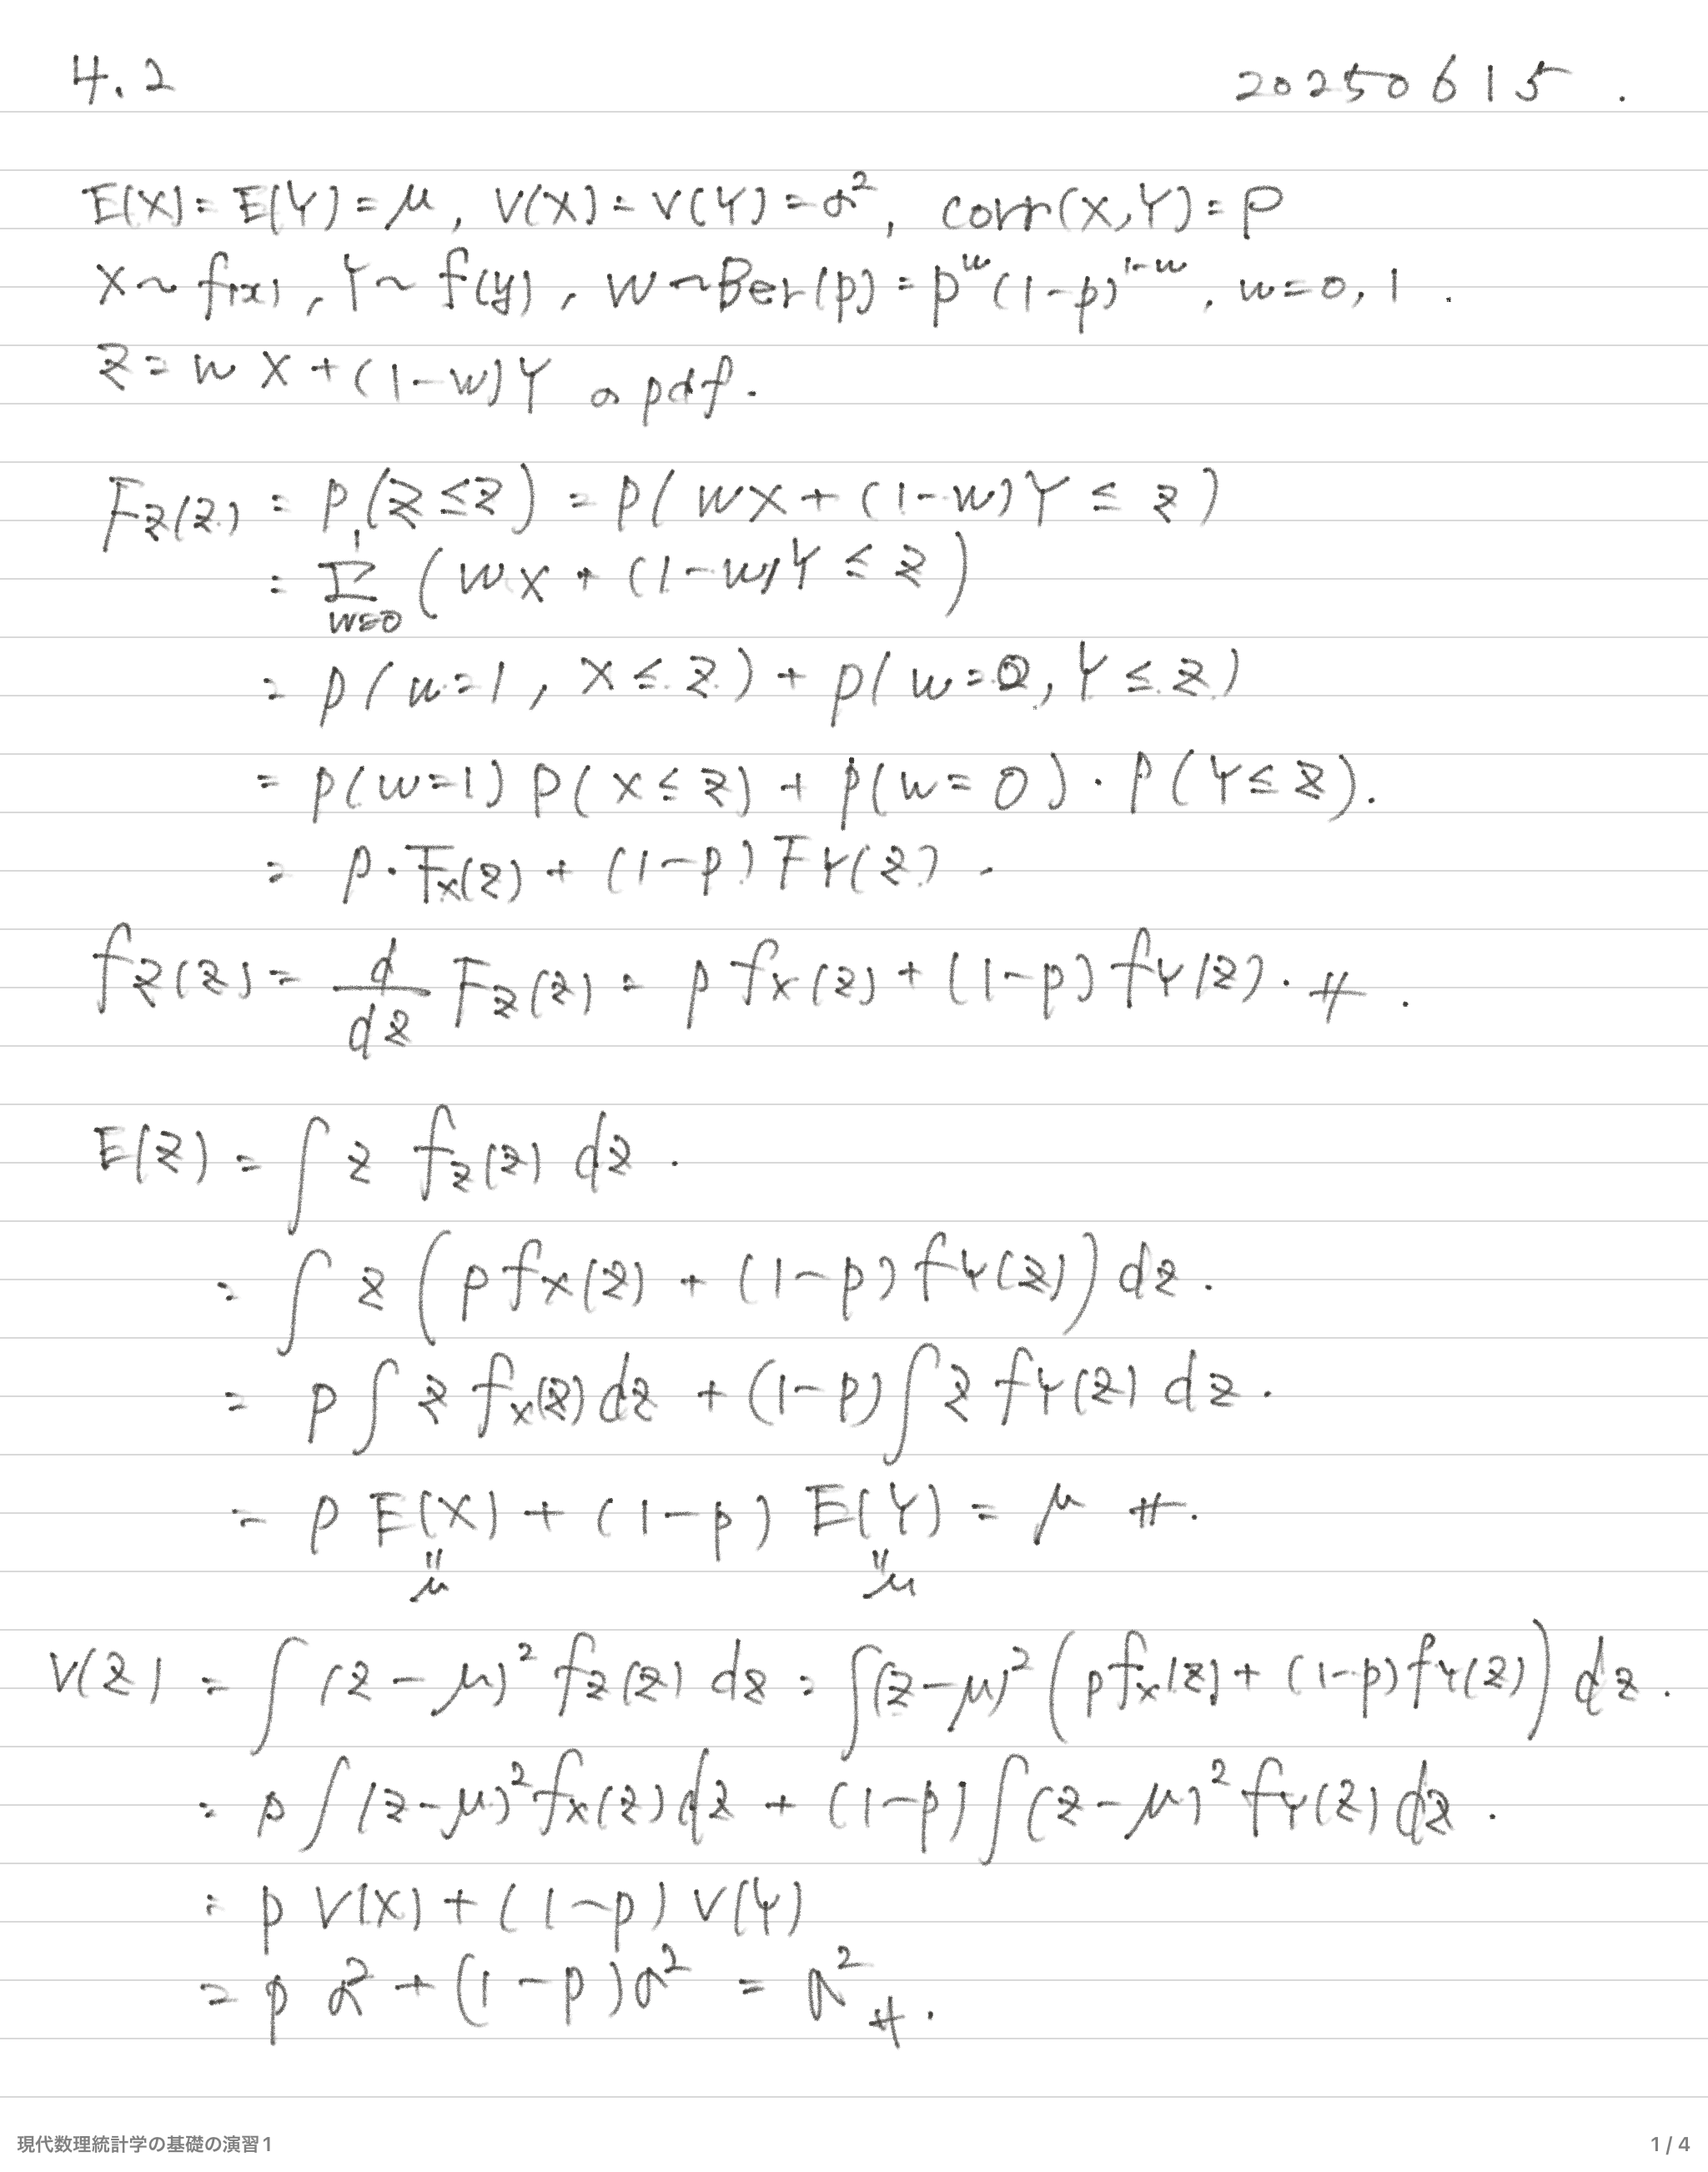 4.2 20250615.
E(X)=E(Y)=μ, V(X)=V(Y)=σ², corr(X,Y)=ρ
X~f(x), Y~f(y), W~Ber(p)=p^w(1-p)^{1-w}, w=0,1.
Z=wX+(1-w)Y の pdf.
F_Z(z) = P(Z≤z) = P(WX+(1-w)Y≤z)
= Σ_{w=0}^{1} (WX+(1-w)Y≤z)
= P(w=1, X≤z)+P(w=0, Y≤z)
= P(w=1)P(X≤z)+P(w=0)・P(Y≤z).
= p・F_X(z)+(1-p)F_Y(z).
f_Z(z) = d/dz F_Z(z) = p f_X(z)+(1-p)f_Y(z). #.
E(Z) = ∫ z f_Z(z) dz.
= ∫ z (p f_X(z)+(1-p)f_Y(z)) dz.
= p∫ z f_X(z)dz+(1-p)∫ z f_Y(z) dz.
= p E(X)+(1-p) E(Y) = μ #.
" "
μ μ
V(Z) = ∫(z-μ)² f_Z(z) dz = ∫(z-μ)² (p f_X(z)+(1-p)f_Y(z)) dz.
= p∫(z-μ)² f_X(z)dz+(1-p)∫(z-μ)² f_Y(z)dz.
= p V(X)+(1-p) V(Y)
= p σ²+(1-p)σ² = σ² #.
現代数理統計学の基礎の演習1 1 / 4